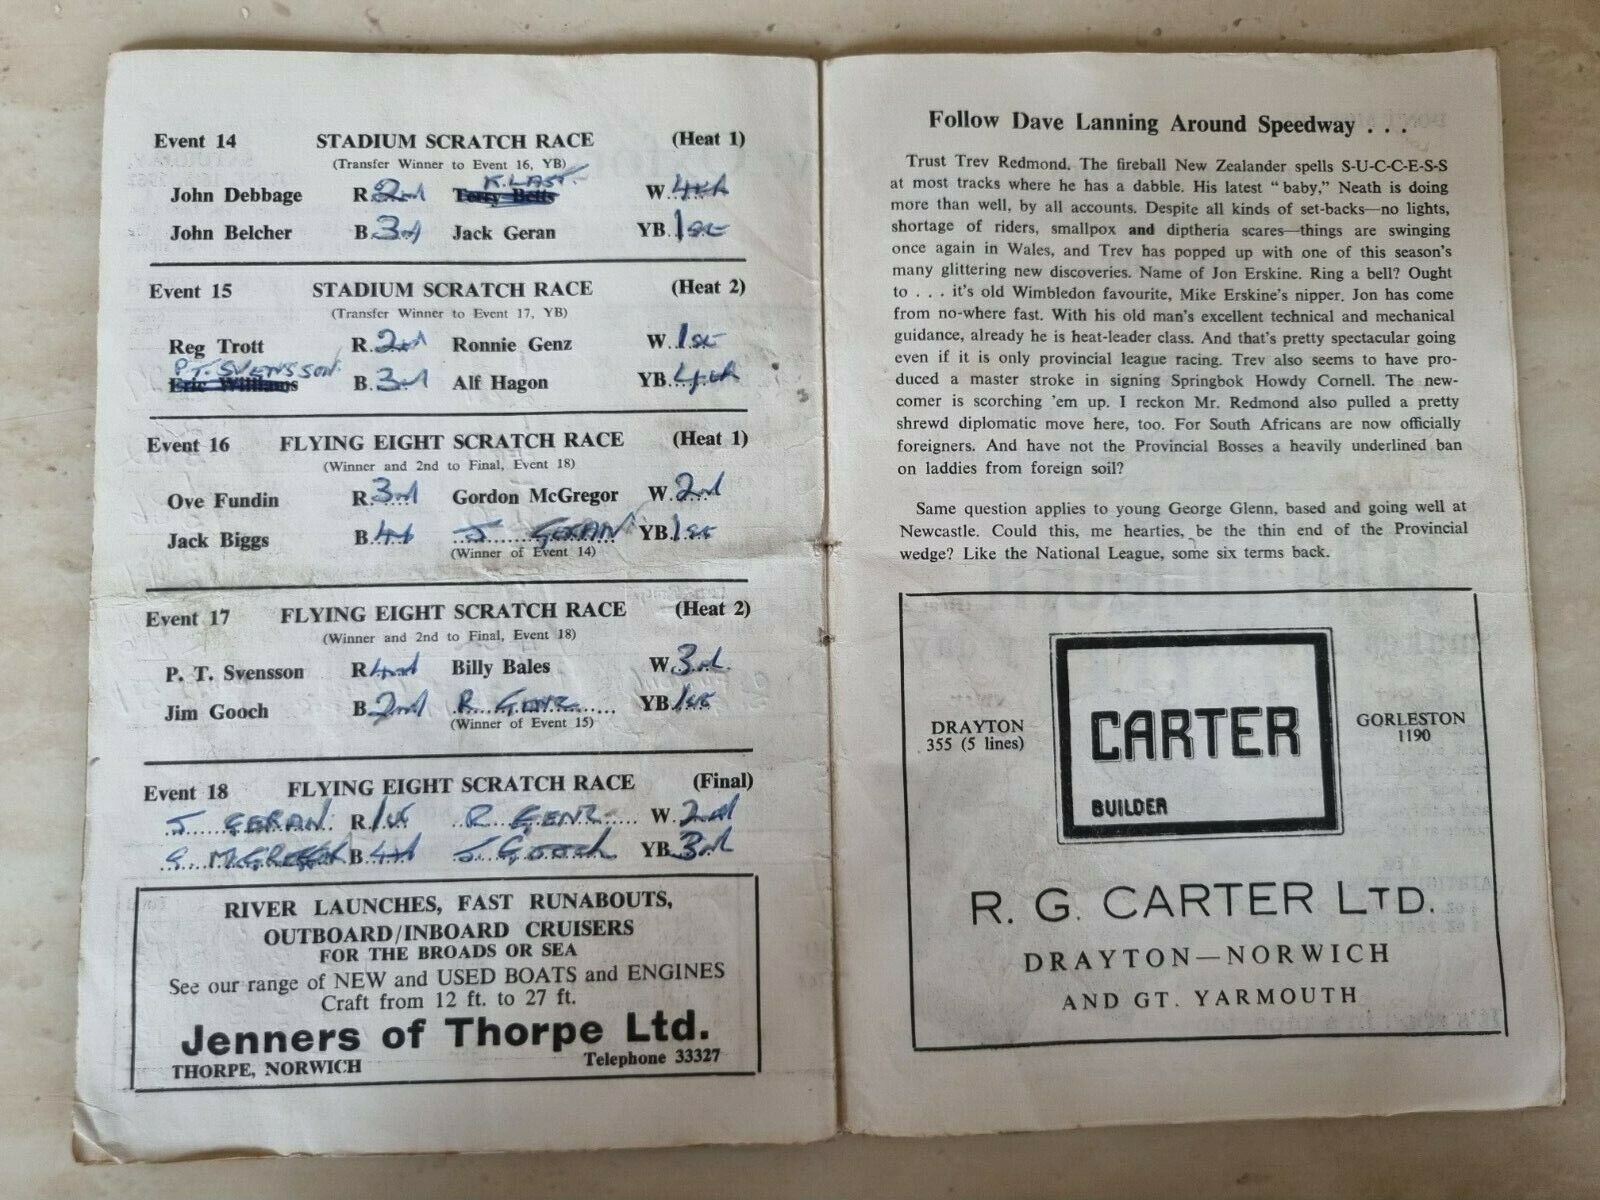 Event 14 STADIUM SCRATCH RACE (Heat 1)
(Transfer Winner to Event 16, YB)
K. LAST
John Debbage R. 2nd Terry Betts W. 4th
John Belcher B. 3rd Jack Geran YB. 1st
Event 15 STADIUM SCRATCH RACE (Heat 2)
(Transfer Winner to Event 17, YB)
Reg Trott R. 2nd Ronnie Genz W. 1st
P. T. SVENSSON
Eric Williams B. 3rd Alf Hagon YB. 4th
Event 16 FLYING EIGHT SCRATCH RACE (Heat 1)
(Winner and 2nd to Final, Event 18)
Ove Fundin R. 3rd Gordon McGregor W. 2nd
Jack Biggs B. 4th J GERAN YB. 1st
(Winner of Event 14)
Event 17 FLYING EIGHT SCRATCH RACE (Heat 2)
(Winner and 2nd to Final, Event 18)
P. T. Svensson R. 4th Billy Bales W. 3rd
Jim Gooch B. 2nd R GENZ YB. 1st
(Winner of Event 15)
Event 18 FLYING EIGHT SCRATCH RACE (Final)
J GERAN R. 1st R GENZ W. 2nd
G McGREGOR B. 4th J Gooch YB. 3rd
RIVER LAUNCHES, FAST RUNABOUTS,
OUTBOARD/INBOARD CRUISERS
FOR THE BROADS OR SEA
See our range of NEW and USED BOATS and ENGINES
Craft from 12 ft. to 27 ft.
Jenners of Thorpe Ltd.
THORPE, NORWICH Telephone 33327
Follow Dave Lanning Around Speedway . . .
Trust Trev Redmond. The fireball New Zealander spells S-U-C-C-E-S-S
at most tracks where he has a dabble. His latest "baby," Neath is doing
more than well, by all accounts. Despite all kinds of set-backs—no lights,
shortage of riders, smallpox and diptheria scares—things are swinging
once again in Wales, and Trev has popped up with one of this season's
many glittering new discoveries. Name of Jon Erskine. Ring a bell? Ought
to . . . it's old Wimbledon favourite, Mike Erskine's nipper. Jon has come
from no-where fast. With his old man's excellent technical and mechanical
guidance, already he is heat-leader class. And that's pretty spectacular going
even if it is only provincial league racing. Trev also seems to have pro-
duced a master stroke in signing Springbok Howdy Cornell. The new-
comer is scorching 'em up. I reckon Mr. Redmond also pulled a pretty
shrewd diplomatic move here, too. For South Africans are now officially
foreigners. And have not the Provincial Bosses a heavily underlined ban
on laddies from foreign soil?
Same question applies to young George Glenn, based and going well at
Newcastle. Could this, me hearties, be the thin end of the Provincial
wedge? Like the National League, some six terms back.
DRAYTON
355 (5 lines)
CARTER
BUILDER
GORLESTON
1190
R. G. CARTER LTD.
DRAYTON—NORWICH
AND GT. YARMOUTH